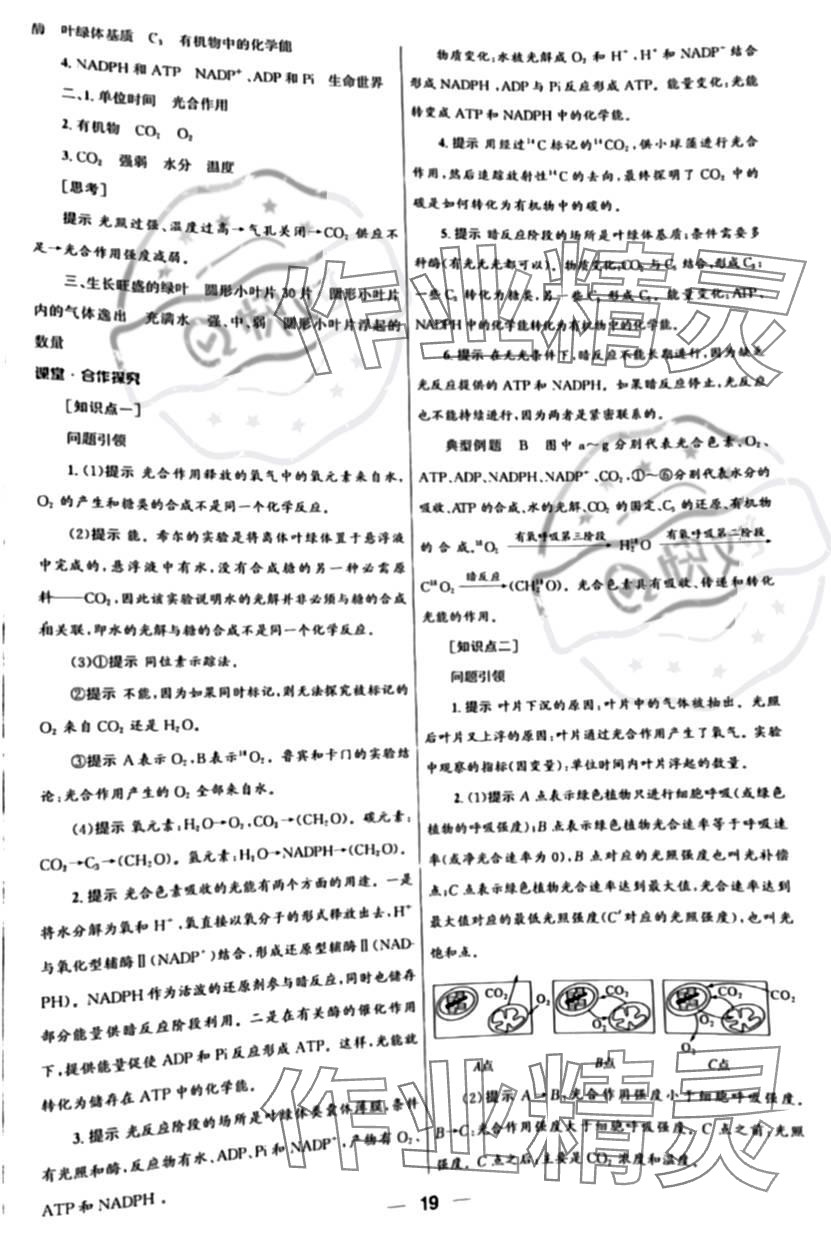 酶　叶绿体基质　C₃　有机物中的化学能
4. NADPH 和 ATP　NADP⁺、ADP 和 Pi　生命世界
二、1. 单位时间　光合作用
2. 有机物　CO₂　O₂
3. CO₂　强弱　水分　温度
[思考]
提示 光照过强、温度过高→气孔关闭→CO₂ 供应不
足→光合作用强度减弱。
三、生长旺盛的绿叶　圆形小叶片 30 片　圆形小叶片
内的气体逸出　充满水　强、中、弱　圆形小叶片浮起的
数量
课堂·合作探究
[知识点一]
问题引领
1. (1)提示 光合作用释放的氧气中的氧元素来自水。
O₂ 的产生和糖类的合成不是同一个化学反应。
(2)提示 能。希尔的实验是将离体叶绿体置于悬浮液
中完成的,悬浮液中有水,没有合成糖的另一种必需原
料——CO₂,因此该实验说明水的光解并非必须与糖的合成
相关联,即水的光解与糖的合成不是同一个化学反应。
(3)①提示 同位素示踪法。
②提示 不能,因为如果同时标记,则无法探究被标记的
O₂ 来自 CO₂ 还是 H₂O。
③提示 A 表示 O₂,B 表示¹⁸O₂。鲁宾和卡门的实验结
论:光合作用产生的 O₂ 全部来自水。
(4)提示 氧元素:H₂O→O₂,CO₂→(CH₂O)。碳元素:
CO₂→C₃→(CH₂O)。氢元素:H₂O→NADPH→(CH₂O)。
2. 提示 光合色素吸收的光能有两个方面的用途。一是
将水分解为氧和 H⁺,氧直接以氧分子的形式释放出去,H⁺
与氧化型辅酶Ⅱ(NADP⁺)结合,形成还原型辅酶Ⅱ(NAD-
PH)。NADPH 作为活泼的还原剂参与暗反应,同时也储存
部分能量供暗反应阶段利用。二是在有关酶的催化作用
下,提供能量促使 ADP 和 Pi 反应形成 ATP。这样,光能就
转化为储存在 ATP 中的化学能。
3. 提示 光反应阶段的场所是叶绿体类囊体薄膜,条件
有光照和酶,反应物有水、ADP、Pi 和 NADP⁺,产物有 O₂、
ATP 和 NADPH。
物质变化:水被光解成 O₂ 和 H⁺,H⁺和 NADP⁺ 结合
形成 NADPH,ADP 与 Pi 反应形成 ATP。能量变化:光能
转变成 ATP 和 NADPH 中的化学能。
4. 提示 用经过¹⁴C 标记的¹⁴CO₂,供小球藻进行光合
作用,然后追踪放射性¹⁴C 的去向,最终探明了 CO₂ 中的
碳是如何转化为有机物中的碳的。
5. 提示 暗反应阶段的场所是叶绿体基质;条件需要多
种酶(有光无光都可以)。物质变化:CO₂ 与 C₅ 结合,形成 C₃;
一些 C₃ 转化为糖类,另一些 C₃ 形成 C₅。能量变化:ATP、
NADPH 中的化学能转化为有机物中的化学能。
6. 提示 在无光条件下,暗反应不能长期进行,因为缺乏
光反应提供的 ATP 和 NADPH。如果暗反应停止,光反应
也不能持续进行,因为两者是紧密联系的。
典型例题　B　图中 a～g 分别代表光合色素、O₂、
ATP、ADP、NADPH、NADP⁺、CO₂,①～⑥分别代表水分的
吸收、ATP 的合成、水的光解、CO₂ 的固定、C₃ 的还原、有机物
的合成。¹⁸O₂ 有氧呼吸第三阶段→ H₂¹⁸O 有氧呼吸第二阶段→
C¹⁸O₂ 暗反应→ (CH₂¹⁸O)。光合色素具有吸收、传递和转化
光能的作用。
[知识点二]
问题引领
1. 提示 叶片下沉的原因:叶片中的气体被抽出。光照
后叶片又上浮的原因:叶片通过光合作用产生了氧气。实验
中观察的指标(因变量):单位时间内叶片浮起的数量。
2. (1)提示 A 点表示绿色植物只进行细胞呼吸(或绿色
植物的呼吸强度);B 点表示绿色植物光合速率等于呼吸速
率(或净光合速率为 0),B 点对应的光照强度也叫光补偿
点;C 点表示绿色植物光合速率达到最大值,光合速率达到
最大值对应的最低光照强度(C′对应的光照强度),也叫光
饱和点。
CO₂　O₂　CO₂　O₂　CO₂　CO₂　O₂　O₂
A点　B点　C点
(2)提示 A→B:光合作用强度小于细胞呼吸强度。
B→C:光合作用强度大于细胞呼吸强度。C 点之前:光照
强度。C 点之后:主要是 CO₂ 浓度和温度。
— 19 —
作业精灵
作业精灵